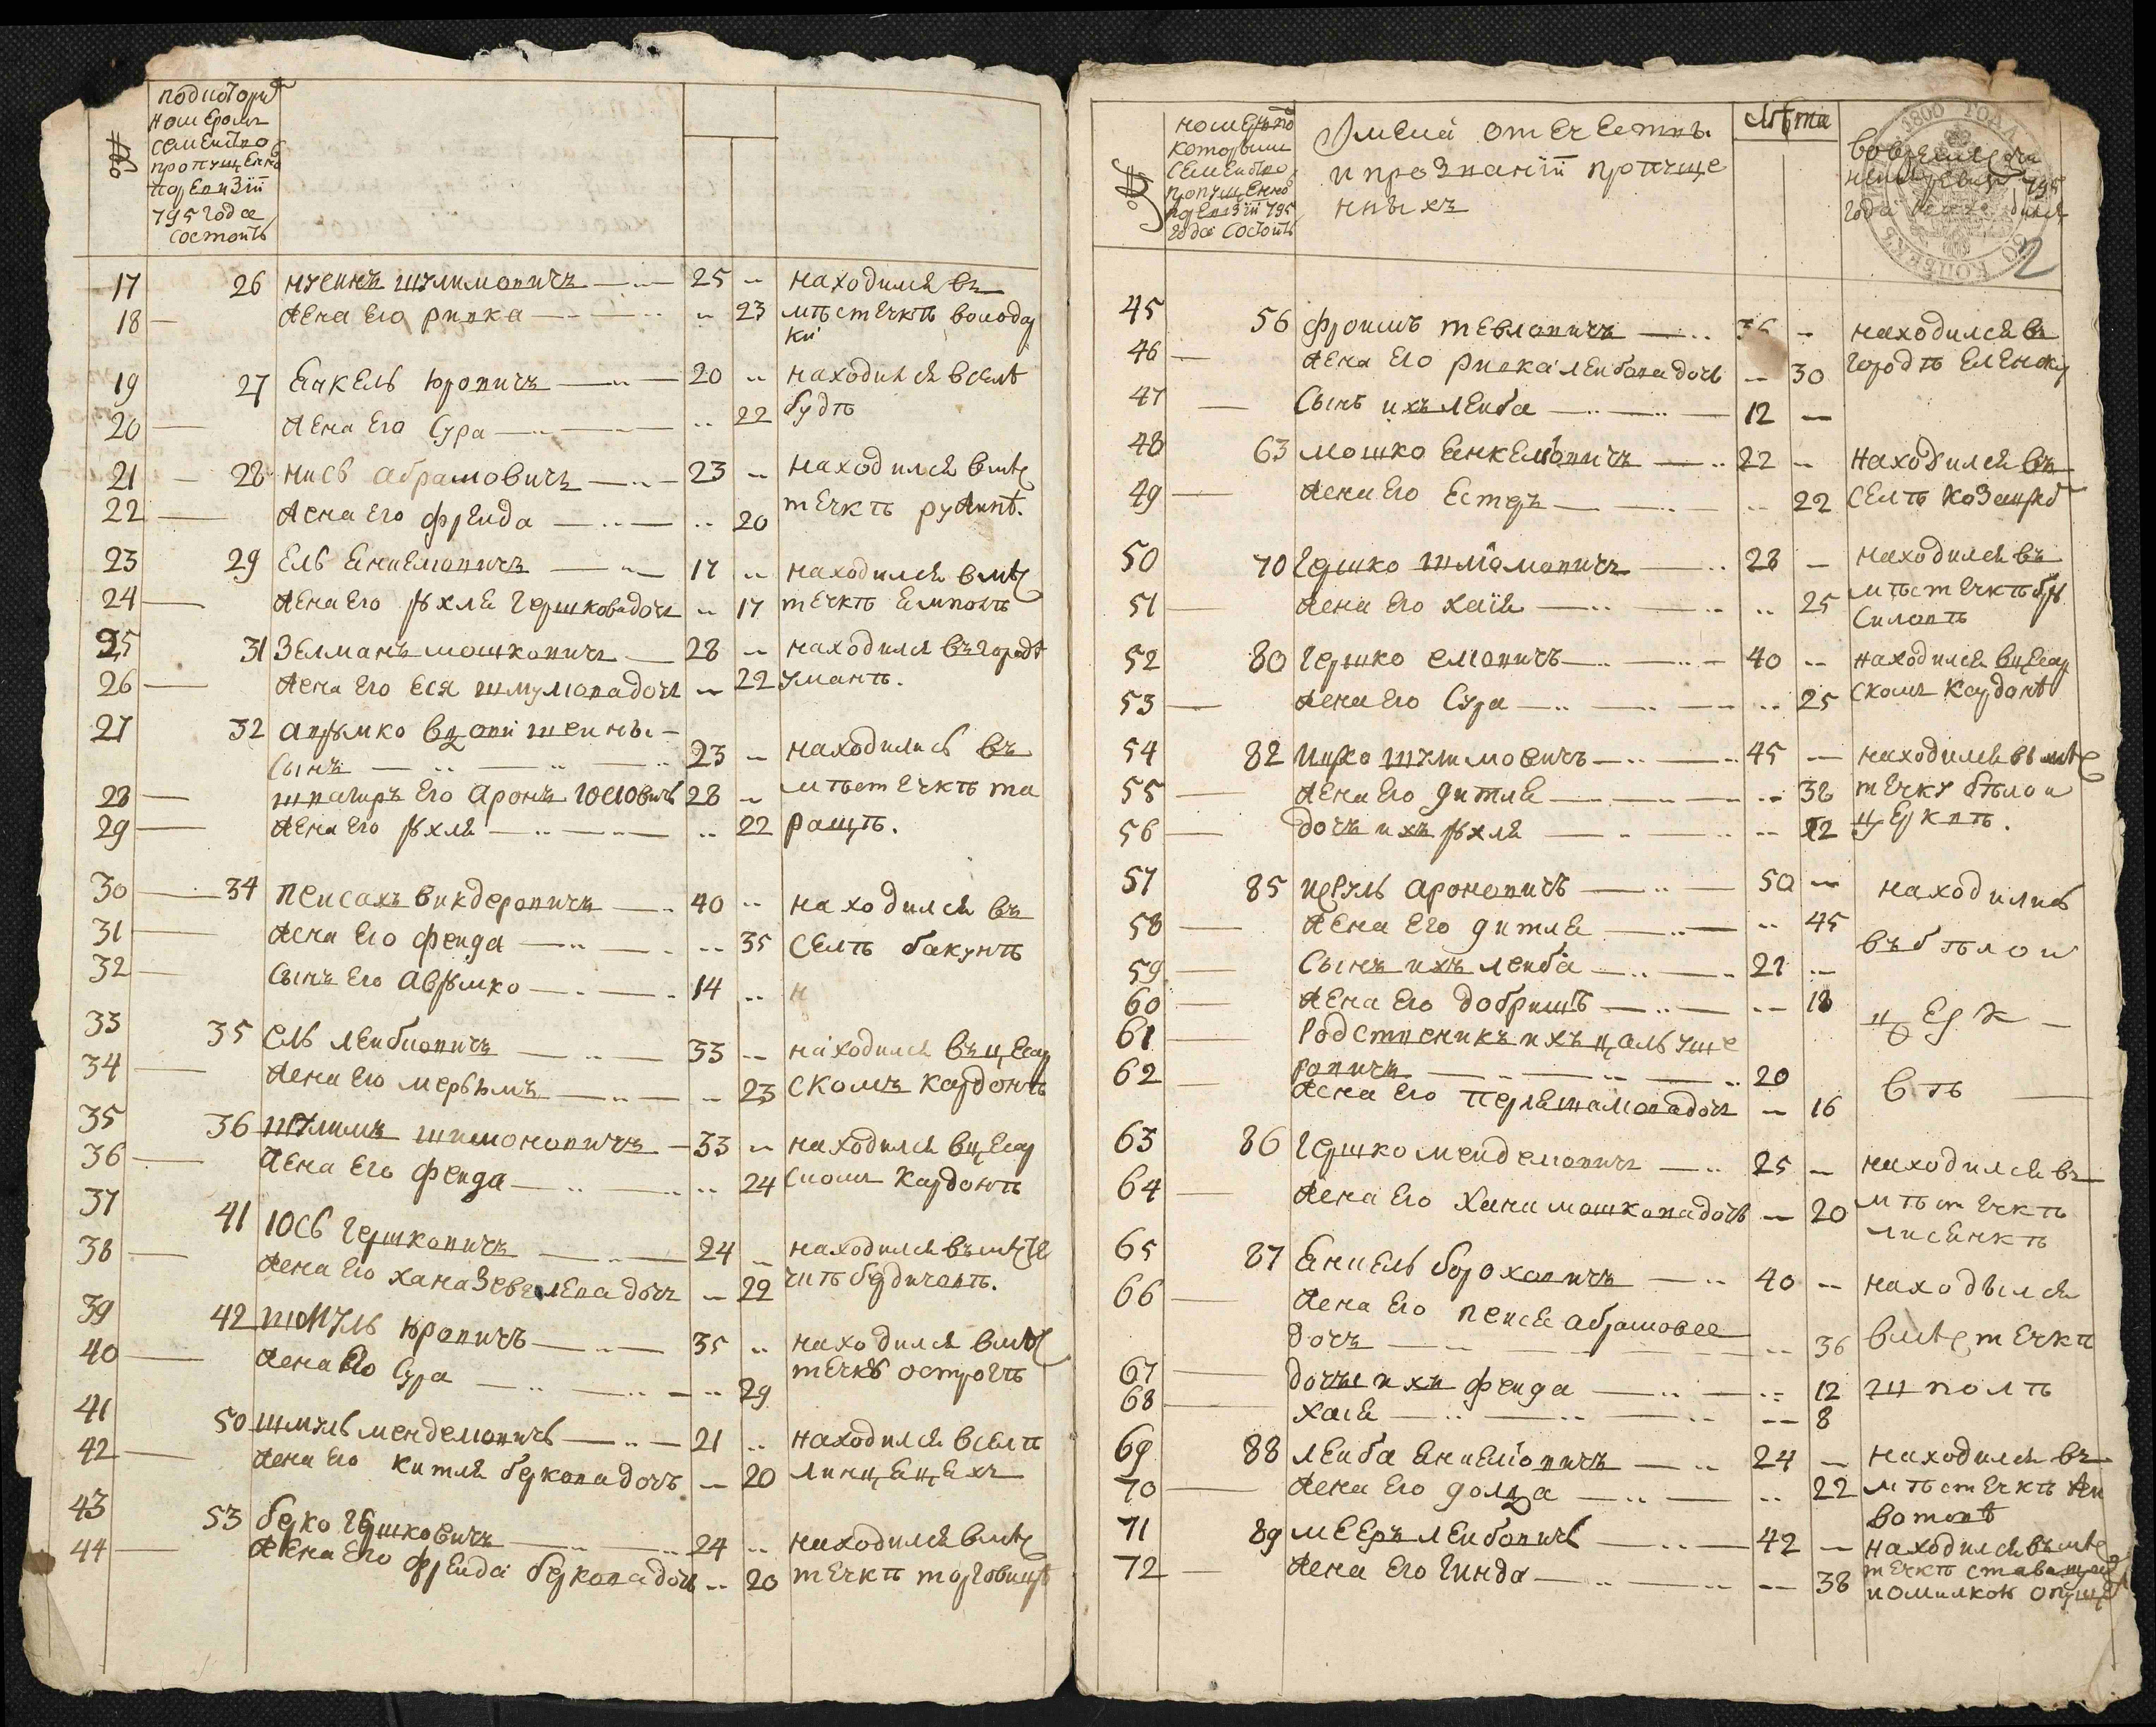 №
подкоторым
номеромъ
семейство
пропущенно
поревизiи
795 года
состоитъ
17 26 нусинъ шулимовичъ 25 находился въ
18 жена его ривка 23 мѣстечкѣ володар
ки
19 27 Янкель юровичъ 20 находился вселѣ
20 жена его Сура 22 будѣ
21 28 нисъ абрамовичъ 23 находился вмѣс
22 жена его фрейда 20 течкѣ ружинѣ.
23 29 Ель Янкелiовичъ 17 находился вмѣс
24 жена его рухля гершковадочь 17 течкѣ
25 31 Зелманъ мошковичъ 28 находился въгородѣ
26 жена его Еся шмулiовадочь 22 уманѣ.
27 32 аврумко
сынъ 23 находились въ
28 швагиръ его аронъ Юсiовичъ 28 мѣстечкѣ та
29 жена его рухля 22 ращѣ.
30 34 пейсахъ викдеровичъ 40 находился въ
31 жена его фейга 35 селѣ бакунѣ
32 сынъ его аврумко 14 н
33 35 ель лейбиовичъ 33 находился въ цесар
34 жена его мерьямъ 23 скомъ кардонѣ
35 36 шулимъ шимоновичъ 33 находился вцесар
36 жена его фейга 24 скомъ кардонѣ
37 41 Юсь гершковичъ 24 находился въмѣсте
38 жена его хана Зевелева дочь 22 чкѣ бердичевѣ.
39 42 шмуль юровичъ 35 находился вмѣс
40 жена его Сура 29 течкѣ острогѣ
41 50 шмуль менделiовичъ 21 находился вселѣ
42 жена его китля берковадочъ 20 линцецехъ
43 53 берко гершковичъ 24 находился вмѣс
44 жена его фрейда берковадочь 20 течкѣ торговицѣ
№
номеръпо
которымъ
семейство
пропущенно
поревизiи 795
года состоитъ
Имена отечествъ
и прозванiй пропуще
нныхъ
Лѣта
1800 ГОДА
КОПѢЕКЪ
2
45 56 фроимъ тевлiовичъ 36 находился въ
46 жена его ривка лейбовадочь 30 городѣ
47 сынъ ихъ лейба 12
48 63 мошко Янкелiовичъ 22 находился въ
49 жена его Естеръ 22 селѣ
50 70 Гершко шлiомовичъ 28 находился въ
51 жена его хаiя 25 мѣстечкѣ бру
силовѣ
52 80 гершко елiовичъ 40 находился вцесар
53 жена его Сура 25 скомъ кардонѣ
54 82 ицко шулимовичъ 45 находился вмѣс
55 жена его дитля 38 течку бѣлои
56 дочъ ихъ рухля 12 церквѣ.
57 85 ароновичъ 50 находились
58 жена его дитля 45
въ бѣлои
59 сынъ ихъ лейба 21
60 жена его добришъ 18
церк
61 Родственикъ ихъ цаль уше
ровичъ 20
62 жена его 16
вѣ
63 86 гершко менделiовичъ 25 находился въ
64 жена его хана мошковадочь 20 мѣстечкѣ
лисянкѣ
65 87 Янкель бороховичъ 40 находвлся
66 жена его пейся абрамовое
дочъ 36 вмѣстечкѣ
67 дочъе ихъ фейга 12 щполѣ
68 хаiя 8
69 88 лейба Янкелiовичъ 24 находился въ
70 жена его голда 22 мѣстечкѣ жи
вотовѣ
71 89 мееръ лейбовичъ 42 находился въмѣс
72 жена его гинда 38 течкѣ ставищахъ